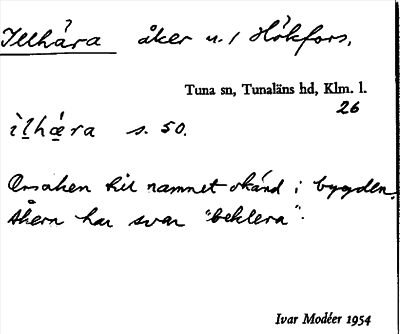 Illhära åker u. / Hökfors,
Tuna sn, Tunaläns hd, Klm. l.
26
ìlhæra s. 50.
Orsaken till namnet okänd i bygden.
Åkern har svar "beklera".
Ivar Modéer 1954